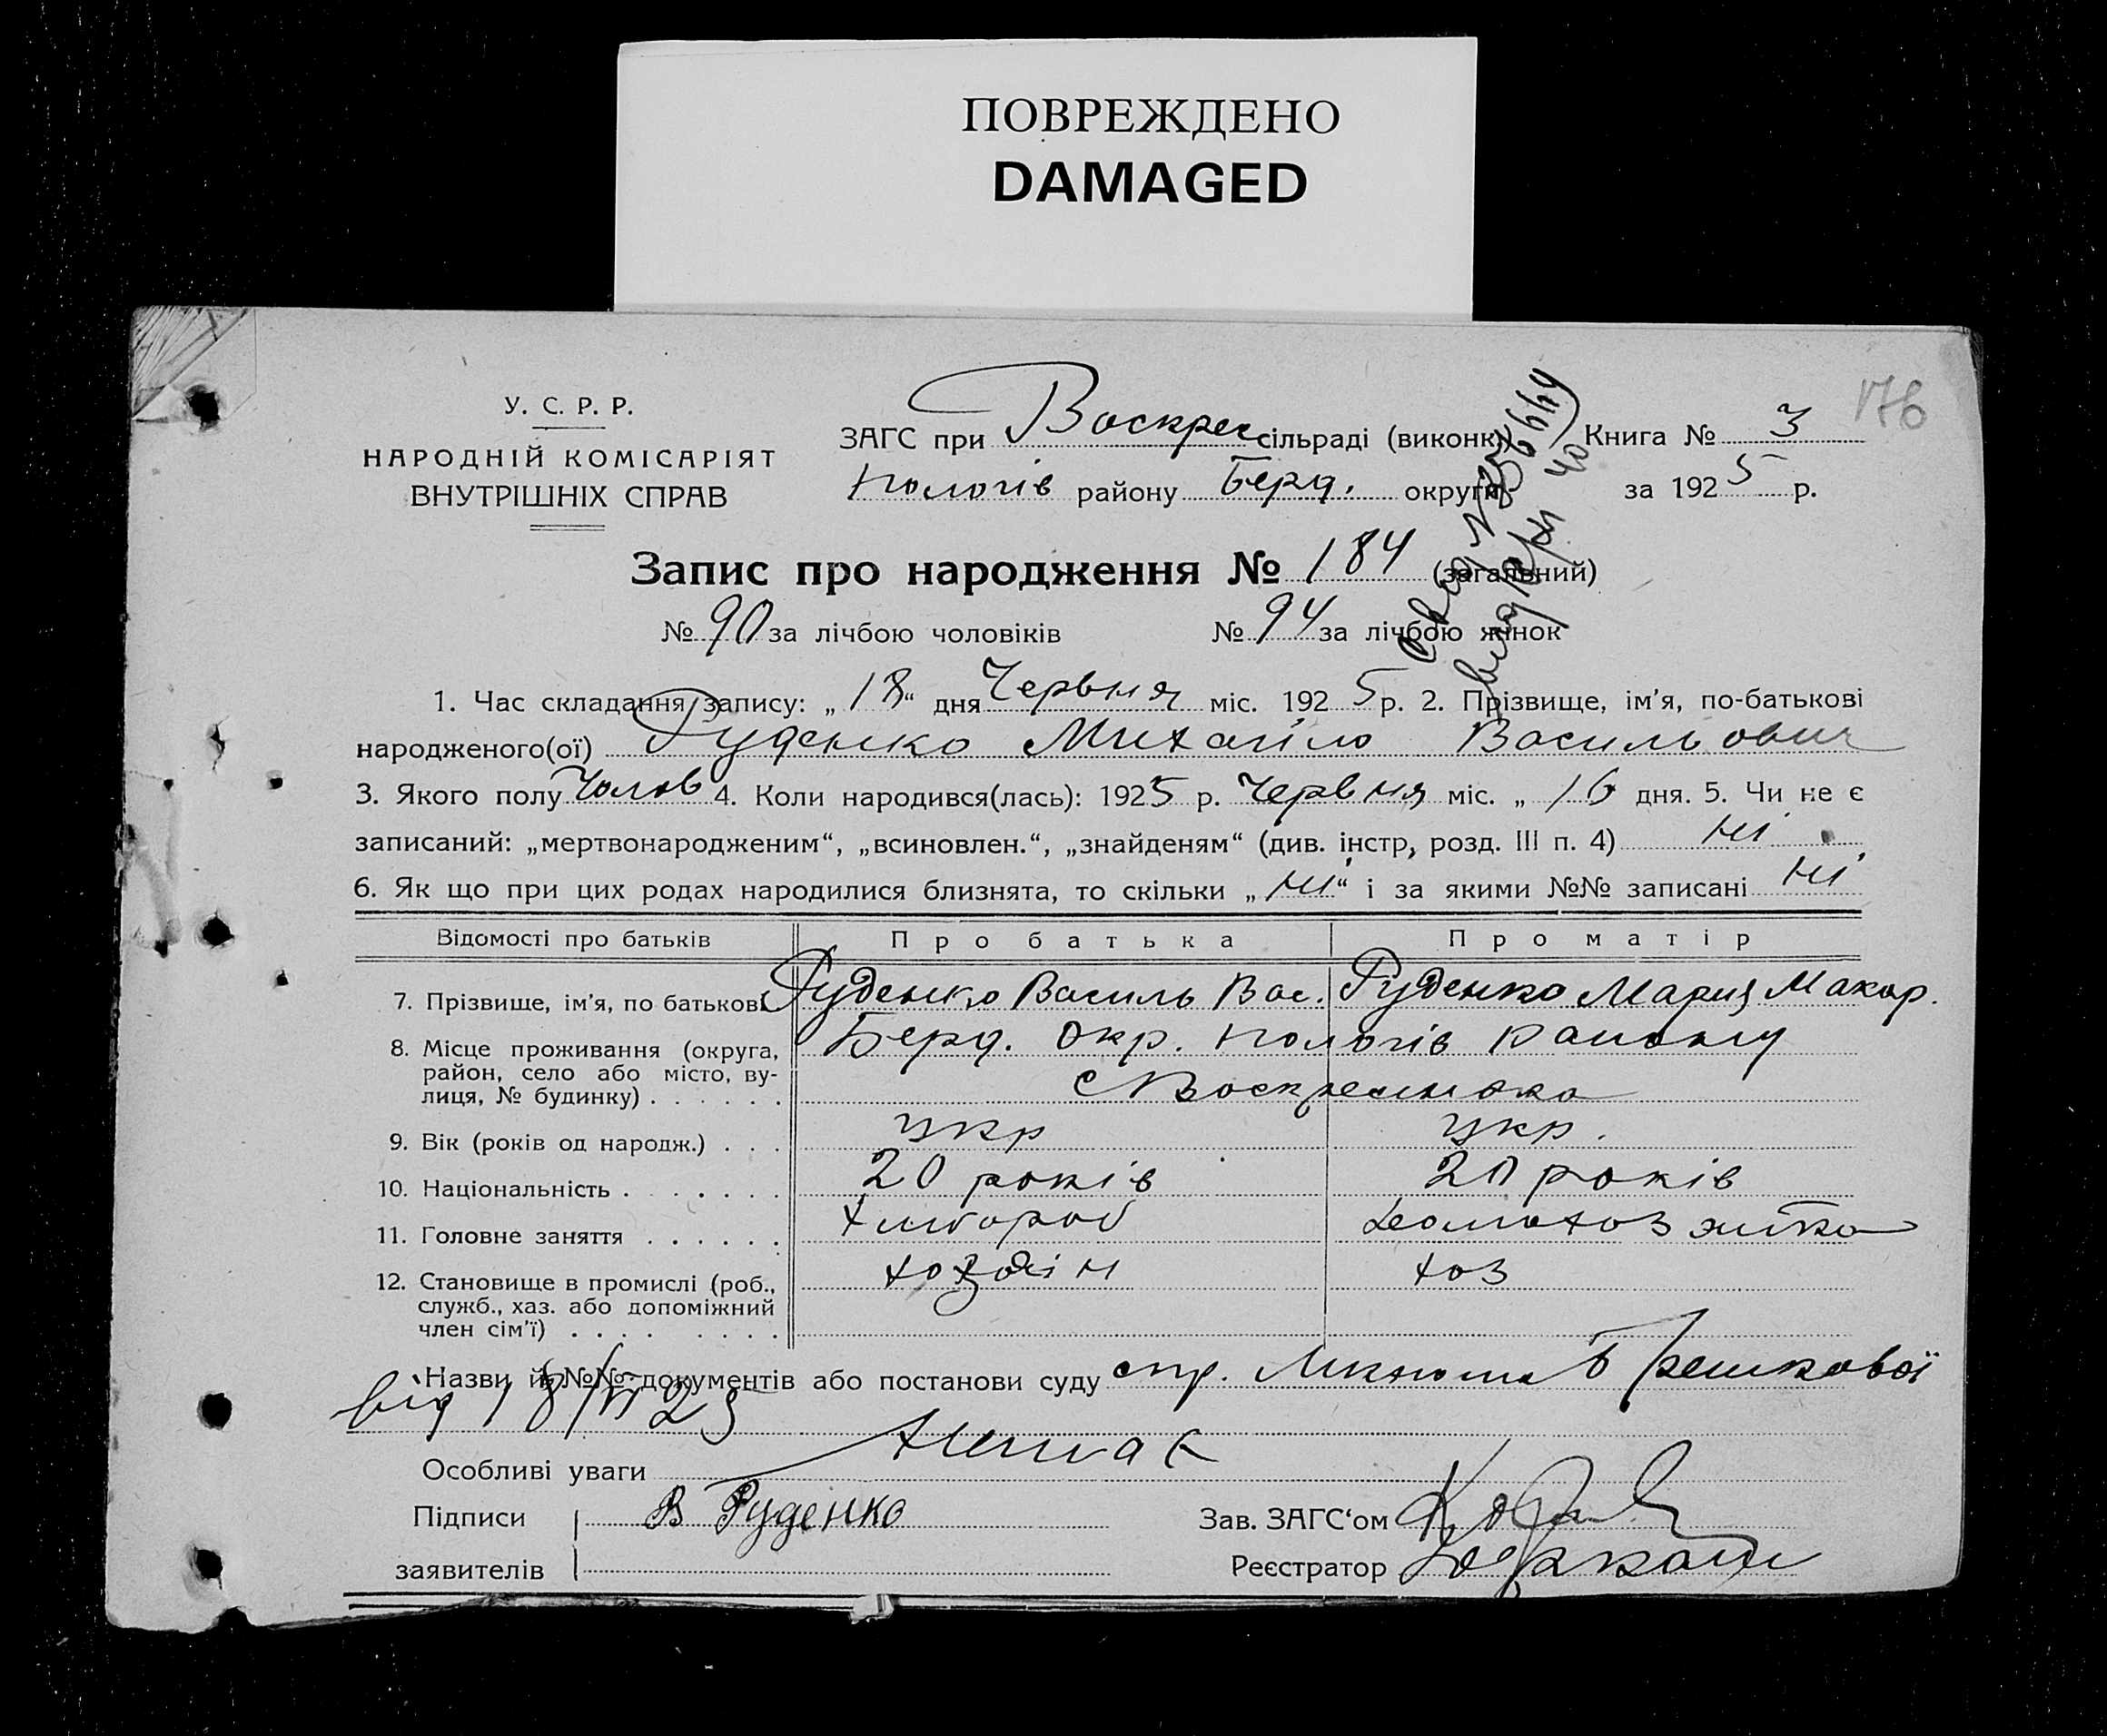 ПОВРЕЖДЕНО
DAMAGED
176
У. С. Р. Р.
НАРОДНІЙ КОМІСАРІЯТ
ВНУТРІШНІХ СПРАВ
ЗАГС при Воскрес сільраді (виконк) Книга № 3
Пологів району Берд. округи за 1925 р.
Запис про народження № 184 (загальний)
№ 90 за лічбою чоловіків № 94 за лічбою жінок
1. Час складання запису: „18“ дня Червня міс. 1925 р. 2. Прізвище, ім’я, по-батькові
народженого(ої) Руденко Михайло Васильович
3. Якого полу Чолов 4. Коли народився(лась): 1925 р. Червня міс. „16 дня. 5. Чи не є
записаний: „мертвонародженим“, „всиновлен.“, „знайденям“ (див. інстр, розд. III п. 4) ні
6. Як що при цих родах народилися близнята, то скільки „ні“ і за якими №№ записані ні
Відомості про батьків Про батька Про матір
7. Прізвище, ім’я, по батькові Руденко Василь Вас. Руденко Мария Макар.
8. Місце проживання (округа, район, село або місто, ву-
лиця, № будинку) Берд. Окр. Пологів району
с Воскресенка
9. Вік (років од народж.) укр укр.
10. Національність 20 років 20 років
11. Головне заняття хлібороб домохозяйка
12. Становище в промислі (роб., хозяін хоз
служб., хаз. або допоміжний
член сім’ї)
Назви й №№ документів або постанови суду спр.
від 18/VI 25
Особливі уваги
Підписи В Руденко Зав. ЗАГС‘ом
заявителів Реєстратор